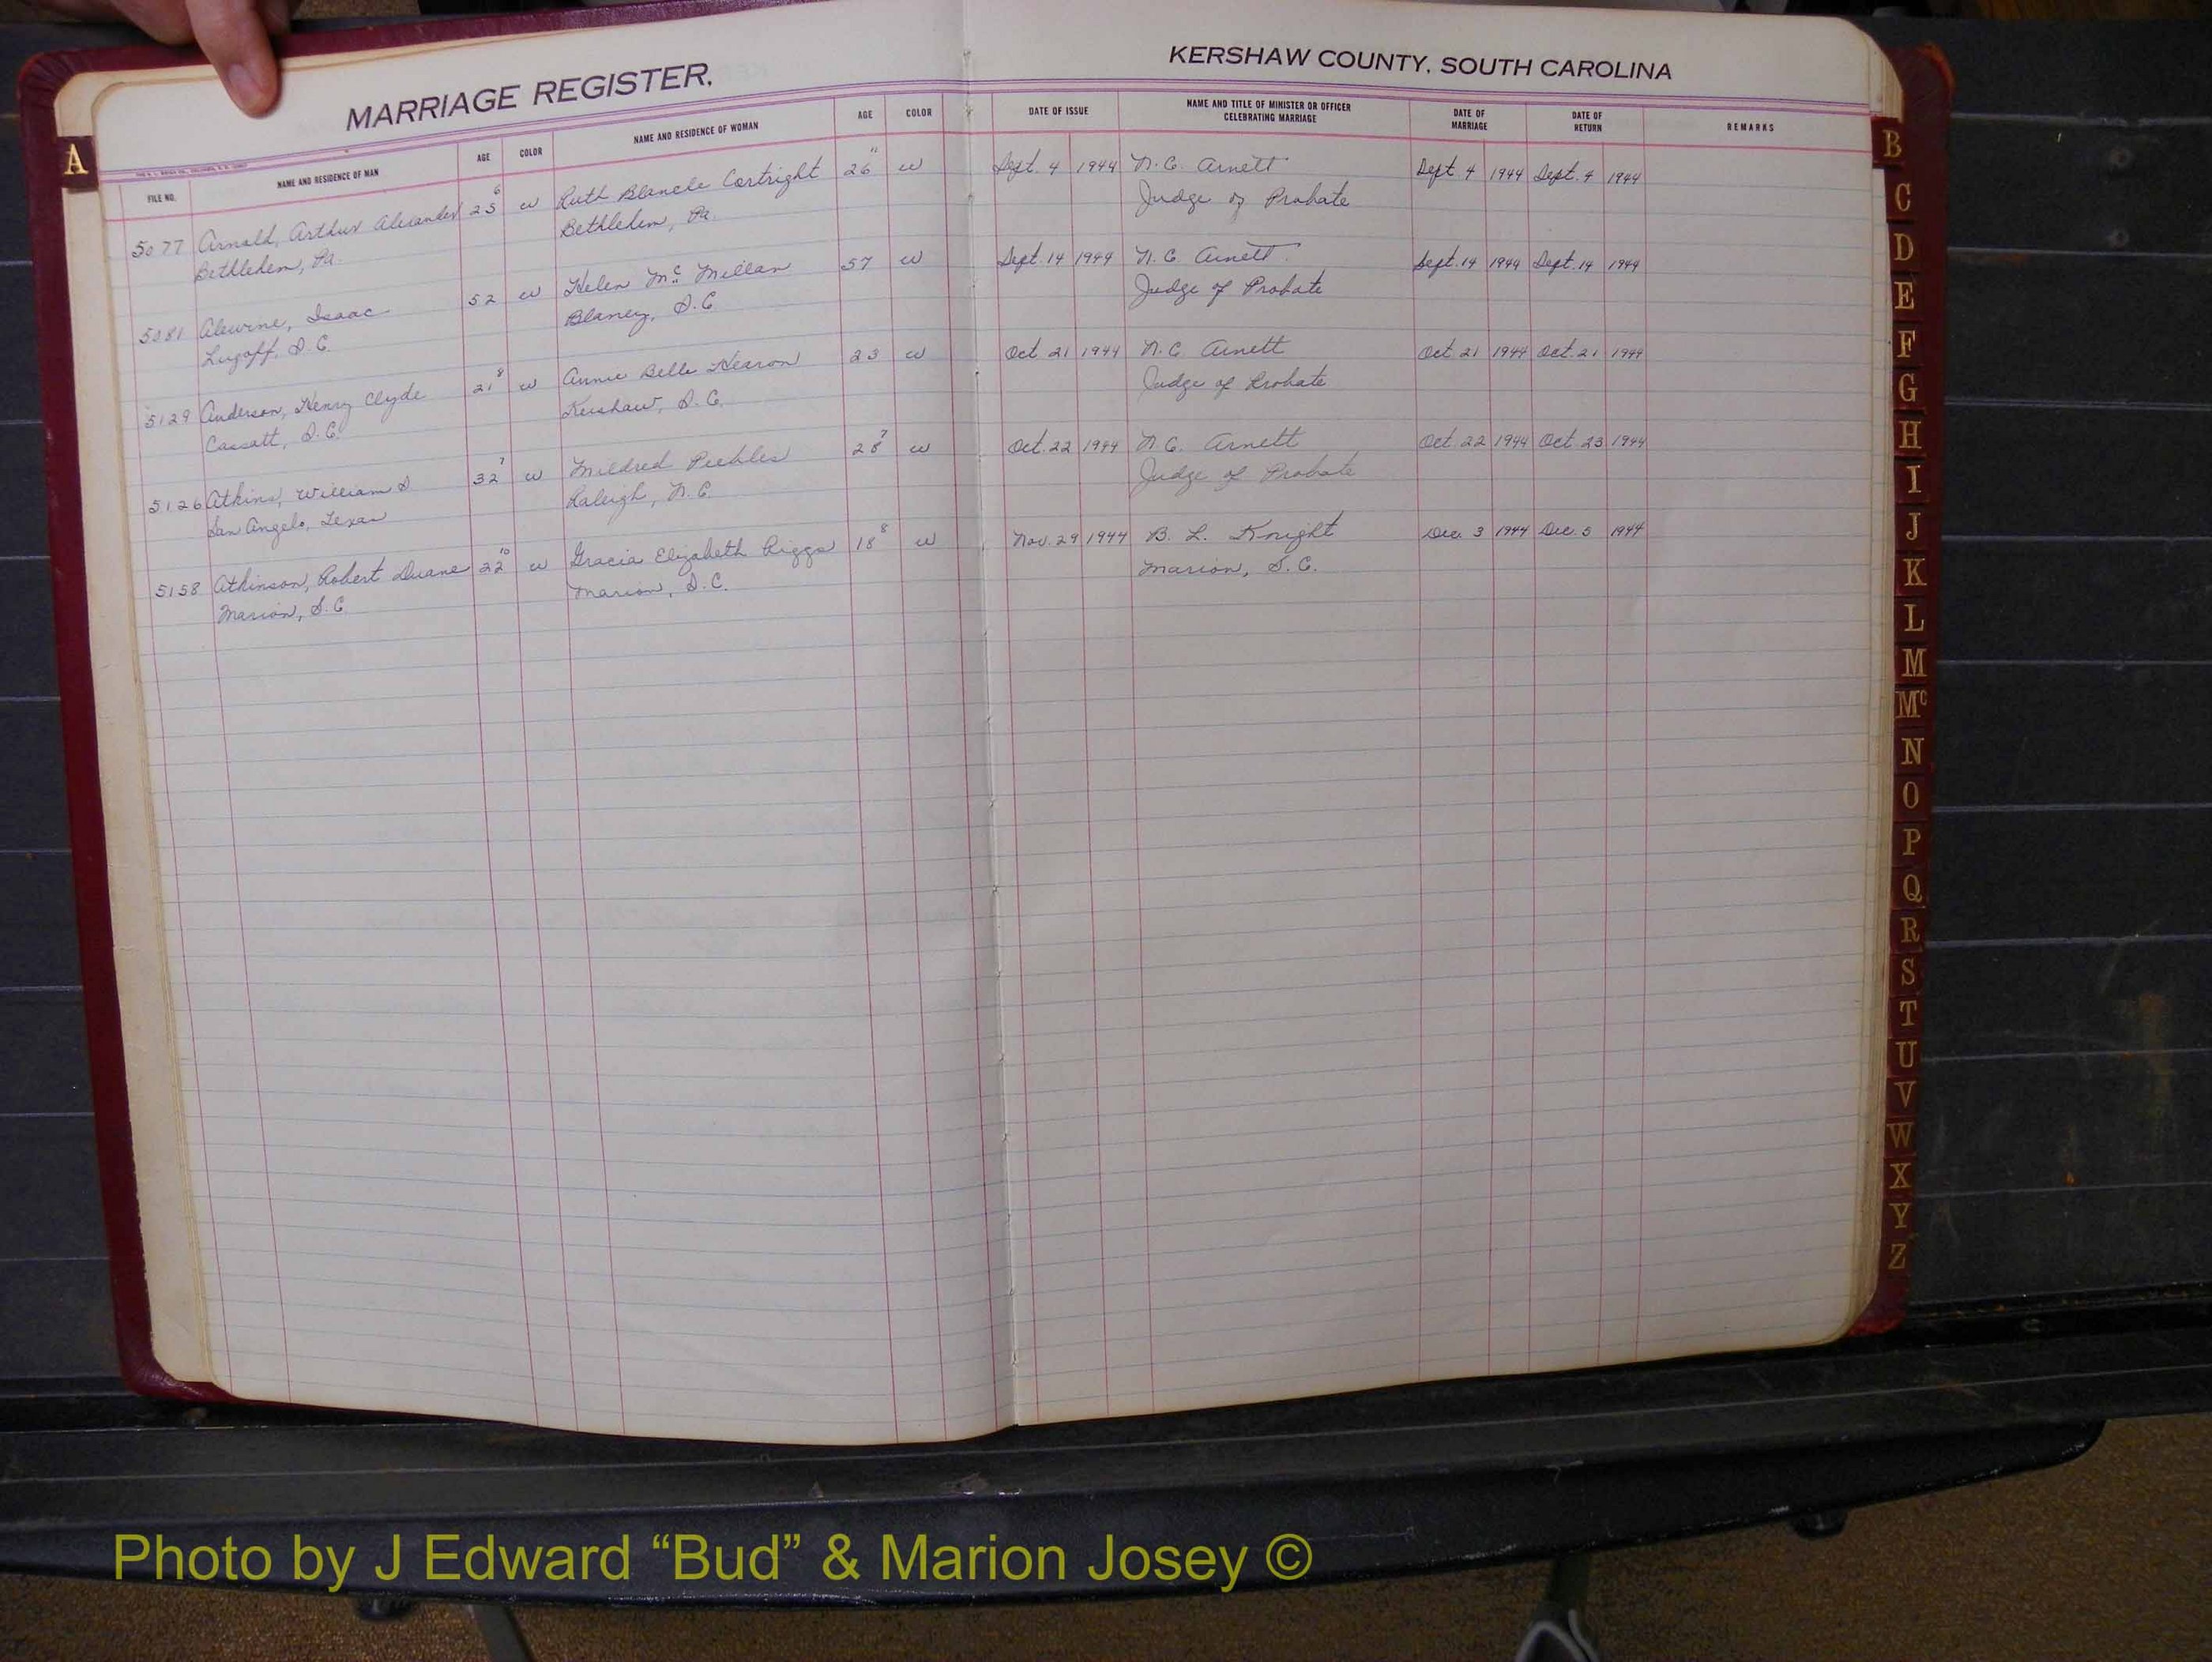 MARRIAGE REGISTER,
KERSHAW COUNTY, SOUTH CAROLINA
FILE NO. NAME AND RESIDENCE OF MAN AGE COLOR NAME AND RESIDENCE OF WOMAN AGE COLOR DATE OF ISSUE NAME AND TITLE OF MINISTER OR OFFICER CELEBRATING MARRIAGE DATE OF MARRIAGE DATE OF RETURN REMARKS
5077 Arnold, Arthur Alexander 25 6 w Ruth Blancle Cortright 26 11 w Sept. 4 1944 N. C. Arnett Sept. 4 1944 Sept. 4 1944
Bethlehem, Pa. Bethlehem, Pa. Judge of Probate
5081 Alewine, Isaac 52 w Helen Mc Millan 57 w Sept. 14 1944 N. C. Arnett Sept. 14 1944 Sept. 14 1944
Lugoff, S.C. Blaney, S.C. Judge of Probate
5129 Anderson, Henry Clyde 21 8 w Annie Belle Hearon 23 w Oct. 21 1944 N. C. Arnett Oct. 21 1944 Oct. 21 1944
Cassatt, S.C. Kershaw, S.C. Judge of Probate
5126 Atkins, William S 32 7 w Mildred Peebles 28 7 w Oct. 22 1944 N. C. Arnett Oct. 22 1944 Oct. 23 1944
San Angelo, Texas Raleigh, N.C. Judge of Probate
5158 Atkinson, Robert Duane 22 10 w Gracia Elizabeth Riggs 18 8 w Nov. 29 1944 B. L. Knight Dec. 3 1944 Dec. 5 1944
Marion, S.C. Marion, S.C. Marion, S.C.
A
B
C
D
E
F
G
H
I
J
K
L
M
Mc
N
O
P
Q
R
S
T
U
V
W
X
Y
Z
Photo by J Edward “Bud” & Marion Josey ©